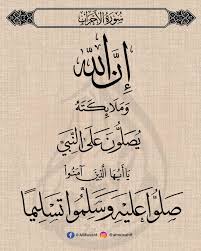 سُورَةُ الأَحْزَاب
إِنَّ اللَّهَ
وَمَلَائِكَتَهُ
يُصَلُّونَ عَلَى النَّبِيِّ
يَا أَيُّهَا الَّذِينَ آمَنُوا
صَلُّوا عَلَيْهِ وَسَلِّمُوا تَسْلِيمًا